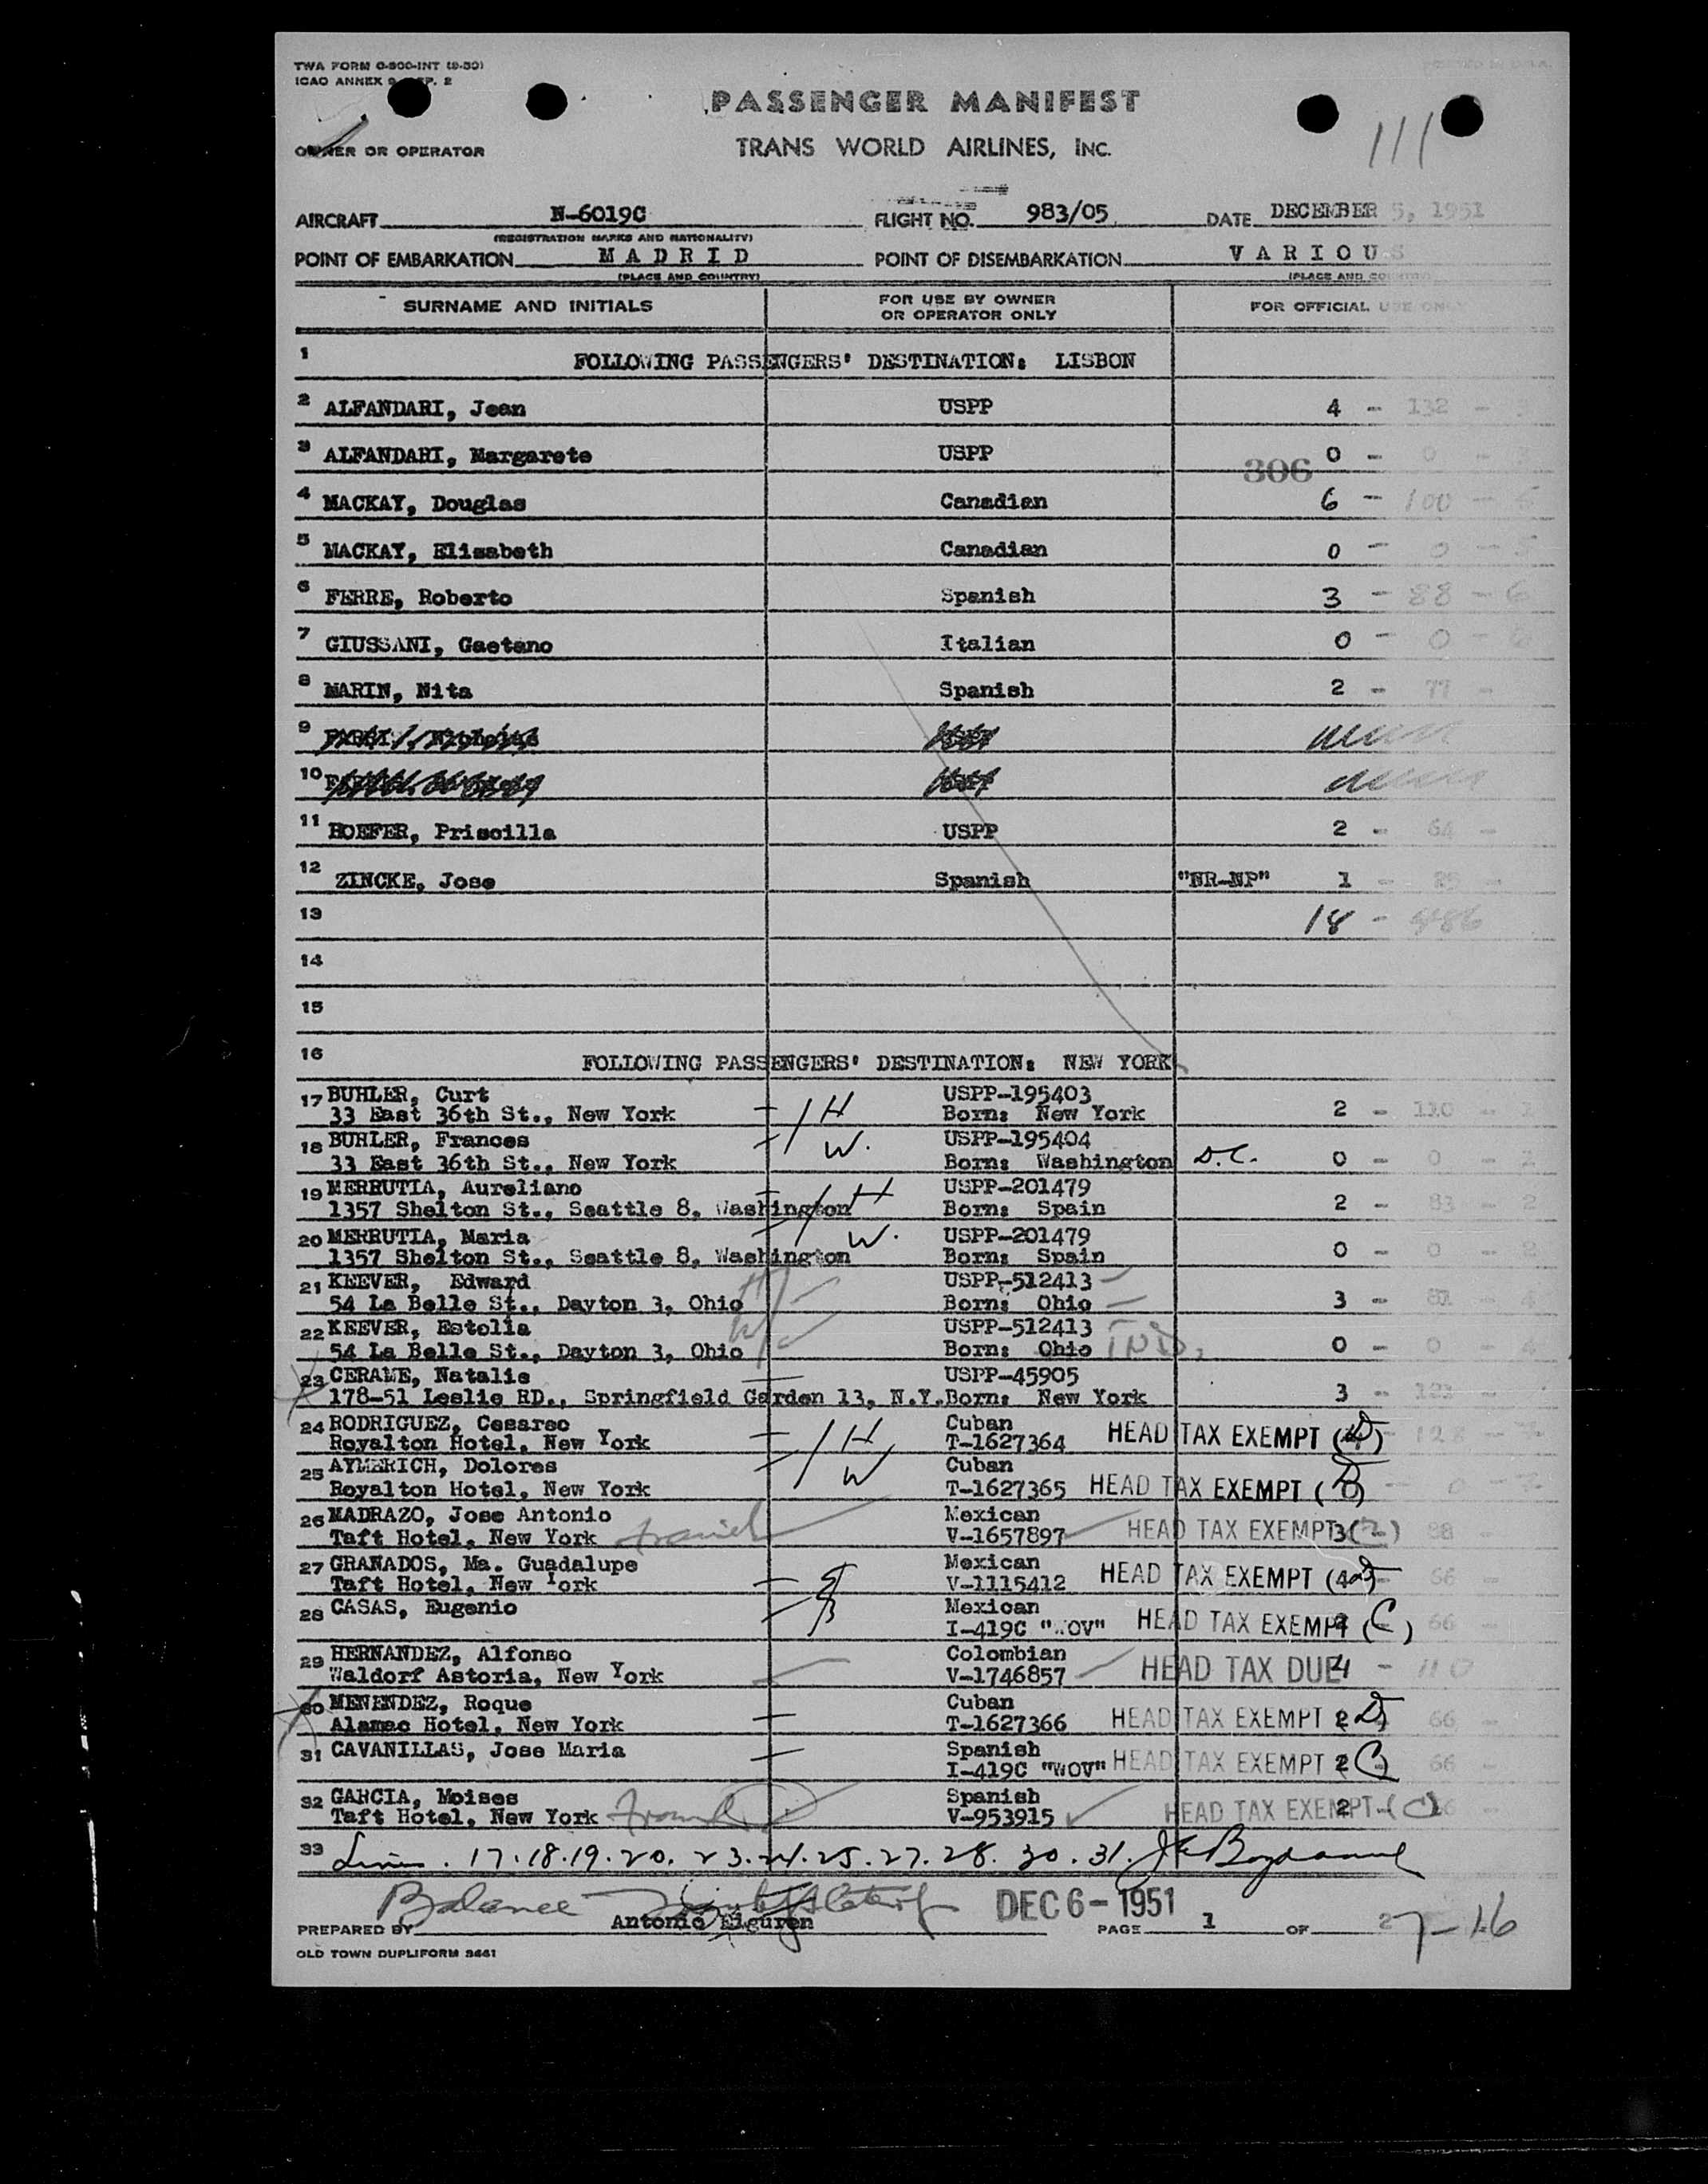 TWA FORM O-800-INT (9-50)
ICAO ANNEX 9 EP. 2
PASSENGER MANIFEST
111
OWNER OR OPERATOR TRANS WORLD AIRLINES, INC.
AIRCRAFT N-6019C FLIGHT NO. 983/05 DATE DECEMBER 5, 1951
(REGISTRATION MARKS AND NATIONALITY)
POINT OF EMBARKATION MADRID POINT OF DISEMBARKATION VARIOUS
(PLACE AND COUNTRY) (PLACE AND COUNTRY)
SURNAME AND INITIALS FOR USE BY OWNER OR OPERATOR ONLY FOR OFFICIAL USE ONLY
1 FOLLOWING PASSENGERS' DESTINATION: LISBON
2 ALFANDARI, Jean USPP 4 - 132 -
3 ALFANDARI, Margarete USPP 0 - 0 -
306
4 MACKAY, Douglas Canadian 6 - 100 - 5
5 MACKAY, Elisabeth Canadian 0 - 0 - 5
6 FERRE, Roberto Spanish 3 - 88 - 6
7 GIUSSANI, Gaetano Italian 0 - 0 - 6
8 MARIN, Nita Spanish 2 - 77 -
9
10
11 HOEFER, Priscilla USPP 2 - 64 -
12 ZINCKE, Jose Spanish "NR-NP" 1 -
13 18 - 486
14
15
16 FOLLOWING PASSENGERS' DESTINATION: NEW YORK
17 BUHLER, Curt USPP-195403
33 East 36th St., New York H Born: New York 2 - 110 -
18 BUHLER, Frances USPP-195404
33 East 36th St., New York W. Born: Washington D.C. 0 - 0 -
19 MERRUTIA, Aureliano H USPP-201479
1357 Shelton St., Seattle 8, Washington Born: Spain 2 - 83 - 2
20 MERRUTIA, Maria W. USPP-201479
1357 Shelton St., Seattle 8, Washington Born: Spain 0 - 0 - 2
21 KEEVER, Edward H USPP-512413
54 La Belle St., Dayton 3, Ohio Born: Ohio 3 - - 4
22 KEEVER, Estolia W USPP-512413
54 La Belle St., Dayton 3, Ohio Born: Ohio IND. 0 - 0 - 4
23 CERAME, Natalie USPP-45905
178-51 Leslie RD., Springfield Garden 13, N.Y. Born: New York 3 -
24 RODRIGUEZ, Cesareo Cuban
Royalton Hotel, New York H T-1627364 HEAD TAX EXEMPT (D) - 128 -
25 AYMERICH, Dolores Cuban
Royalton Hotel, New York W T-1627365 HEAD TAX EXEMPT (D) - 0 -
26 MADRAZO, Jose Antonio Mexican
Taft Hotel, New York V-1657897 HEAD TAX EXEMPT 3 (2) 88 -
27 GRANADOS, Ma. Guadalupe Mexican
Taft Hotel, New York V-1115412 HEAD TAX EXEMPT - 66 -
28 CASAS, Eugenio Mexican
I-419C "WOV" HEAD TAX EXEMPT (C) 66 -
29 HERNANDEZ, Alfonso Colombian
Waldorf Astoria, New York V-1746857 HEAD TAX DUE 4 - 110
30 MENENDEZ, Roque Cuban
Alamac Hotel, New York T-1627366 HEAD TAX EXEMPT 2 D 66 -
31 CAVANILLAS, Jose Maria Spanish
I-419C "WOV" HEAD TAX EXEMPT 2 (C) 66 -
32 GARCIA, Moises Spanish
Taft Hotel, New York V-953915 HEAD TAX EXEMPT 2 - (C)
33 Lines. 17.18.19.20. 23.24.25.27.28. 30.31.
Balance DEC 6 - 1951
PREPARED BY Antonio Elguren PAGE 1 OF 2 7-16
OLD TOWN DUPLIFORM 3441